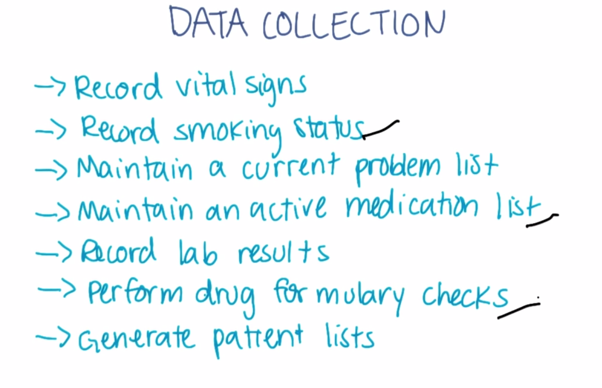 DATA COLLECTION
→ Record vital signs
→ Record smoking status
→ Maintain a current problem list
→ Maintain an active medication list
→ Record lab results
→ Perform drug formulary checks
→ Generate patient lists